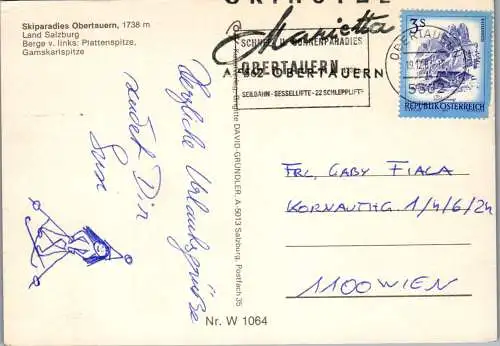 Skiparadies Obertauern, 1738 m
Land Salzburg
Berge v. links: Plattenspitze,
Gamskarlspitze
Marietta
SCHNEE- U. SONNENPARADIES
OBERTAUERN
SEILBAHN-SESSELLIFTE-22 SCHLEPPLIFTE
A-5562 OBERTAUERN
OBERTAUERN
5562
3S
REPUBLIK ÖSTERREICH
Herzliche Urlaubsgrüße
sendet Dir
Brigitte DAVID-GRÜNDLER, A-5013 Salzburg, Postfach 35
FRL. GABY FIALA
KORNAUTHG 1/4/6/24
1100 WIEN
Nr. W 1064